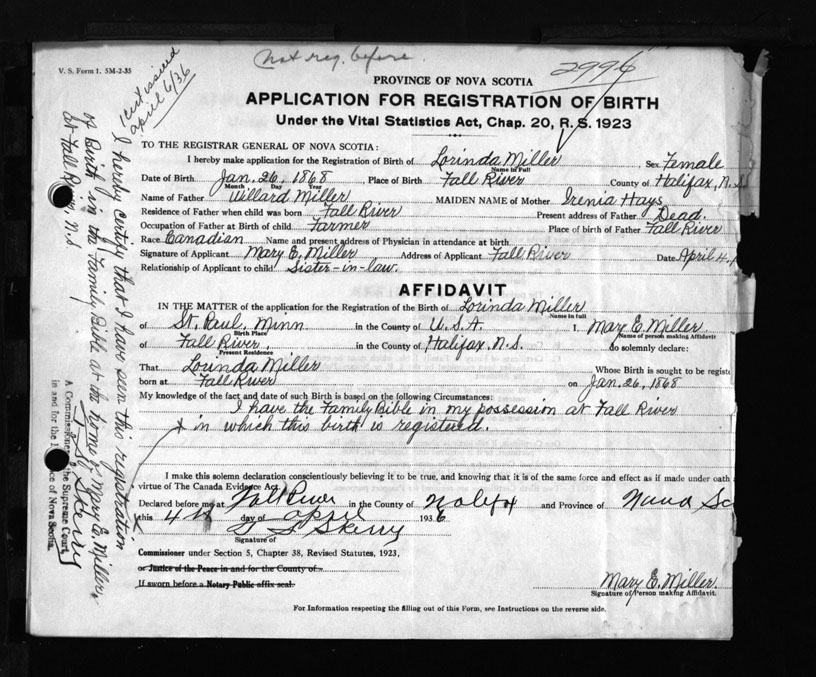 V. S. Form 1. 5M-2-35
Not reg. before.
2996
Cert issued
April 6/36
PROVINCE OF NOVA SCOTIA
APPLICATION FOR REGISTRATION OF BIRTH
Under the Vital Statistics Act, Chap. 20, R. S. 1923
TO THE REGISTRAR GENERAL OF NOVA SCOTIA:
I hereby make application for the Registration of Birth of Lorinda Miller Sex Female
Name in Full
Date of Birth Jan. 26, 1868 Place of Birth Fall River County of Halifax, N. S.
Month Day Year
Name of Father Willard Miller MAIDEN NAME of Mother Irenia Hays
Residence of Father when child was born Fall River Present address of Father Dead.
Occupation of Father at Birth of child Farmer Place of birth of Father Fall River
Race Canadian Name and present address of Physician in attendance at birth
Signature of Applicant Mary E. Miller Address of Applicant Fall River Date April 4,
Relationship of Applicant to child Sister-in-law.
AFFIDAVIT
IN THE MATTER of the application for the Registration of the Birth of Lorinda Miller
Name in full
of St. Paul, Minn in the County of U.S.A. I, Mary E. Miller
Birth Place Name of person making Affidavit
of Fall River, in the County of Halifax, N.S. do solemnly declare:
Present Residence
That Lorinda Miller Whose Birth is sought to be regist
born at Fall River on Jan. 26, 1868
My knowledge of the fact and date of such Birth is based on the following Circumstances:
I have the Family Bible in my possession at Fall River
x in which this birth is registered.
I make this solemn declaration conscientiously believing it to be true, and knowing that it is of the same force and effect as if made under oath
virtue of The Canada Evidence Act.
Declared before me at Fall River in the County of Halifax and Province of Nova Sc
this 4th day of April 1936
T S Skerry
Signature of
Commissioner under Section 5, Chapter 38, Revised Statutes, 1923,
or Justice of the Peace in and for the County of
If sworn before a Notary Public affix seal.
Mary E. Miller.
Signature of Person making Affidavit.
For Information respecting the filling out of this Form, see Instructions on the reverse side.
I hereby certify that I have seen this registration
of Birth in the Family Bible at the home of Mary E. Miller,
at Fall River, N.S
T S Skerry
A Commissioner of the Supreme Court
in and for the Province of Nova Scotia.